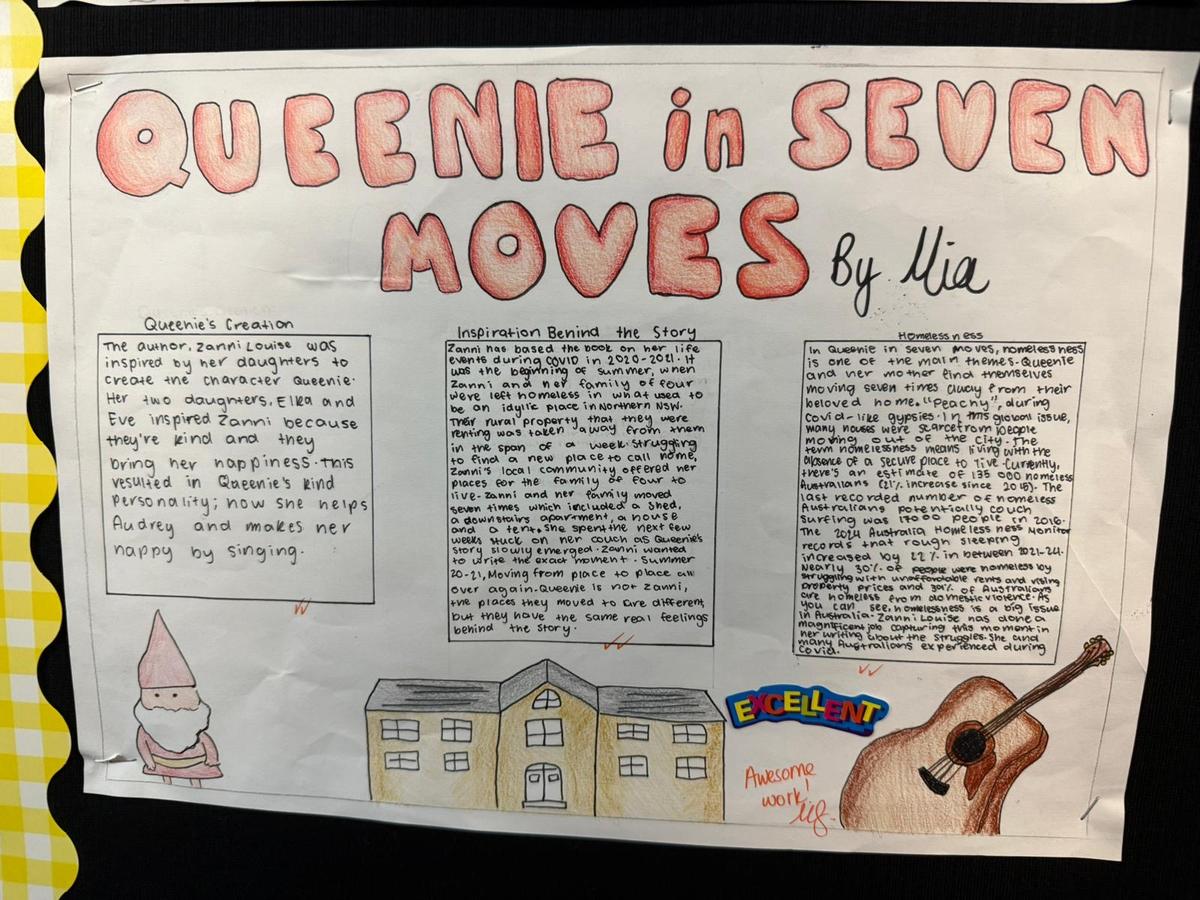 QUEENIE in SEVEN
MOVES
By Mia
Queenie's Creation
The author, Zanni Louise was
inspired by her daughters to
create the character Queenie.
Her two daughters, Elka and
Eve inspired Zanni because
they're kind and they
bring her happiness. This
resulted in Queenie's kind
personality; how she helps
Audrey and makes her
happy by singing.
Inspiration Behind the Story
Zanni has based the book on her life
events during COVID in 2020-2021. It
was the beginning of summer, when
Zanni and her family of four
were left homeless in what used to
be an idyllic place in Northern NSW.
Their rural property that they were
renting was taken away from them
in the span of a week. Struggling
to find a new place to call home,
Zanni's local community offered her
places for the family of four to
live. Zanni and her family moved
seven times which included a shed,
a downstairs apartment, a house
and a tent. She spent the next few
weeks stuck on her couch as Queenie's
story slowly emerged. Zanni wanted
to write the exact moment. Summer
20-21, Moving from place to place all
over again. Queenie is not Zanni,
the places they moved to are different,
but they have the same real feelings
behind the story.
Homelessness
In Queenie in seven moves, homelessness
is one of the main themes. Queenie
and her mother find themselves
moving seven times away from their
beloved home, "Peachy", during
Covid-like gypsies. In this global issue,
many houses were scarce from people
moving out of the city. The
term homelessness means living with the
absence of a secure place to live. Currently,
there's an estimate of 135 000 homeless
Australians (21% increase since 2018). The
last recorded number of homeless
Australians potentially couch
surfing was 17000 people in 2016.
The 2024 Australia Homelessness Monitor
records that rough sleeping
increased by 22% in between 2021-24.
Nearly 30% of people were homeless by
struggling with unaffordable rents and rising
property prices and 39% of Australians
are homeless from domestic violence. As
you can see, homelessness is a big issue
in Australia. Zanni Louise has done a
magnificent job capturing this moment in
her writing about the struggles. She and
many Australians experienced during
Covid.
EXCELLENT
Awesome
work!